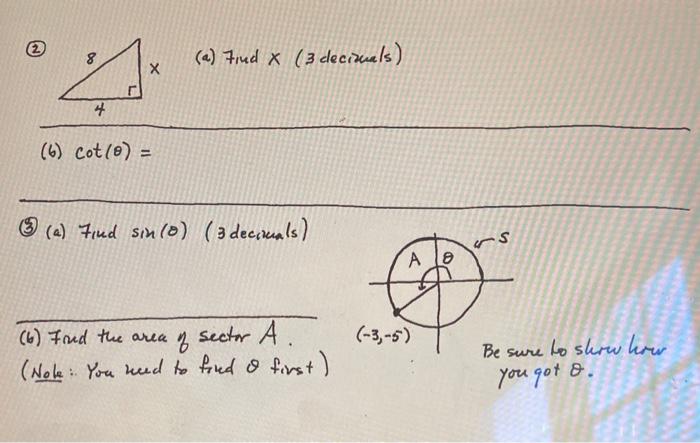 ②
8
x
4
(a) Find x (3 decimals)
(b) cot(θ) =
③ (a) Find sin(θ) (3 decimals)
S
A θ
(-3,-5)
(b) Find the area of sector A.
(Note: You need to find θ first)
Be sure to show how
you got θ.